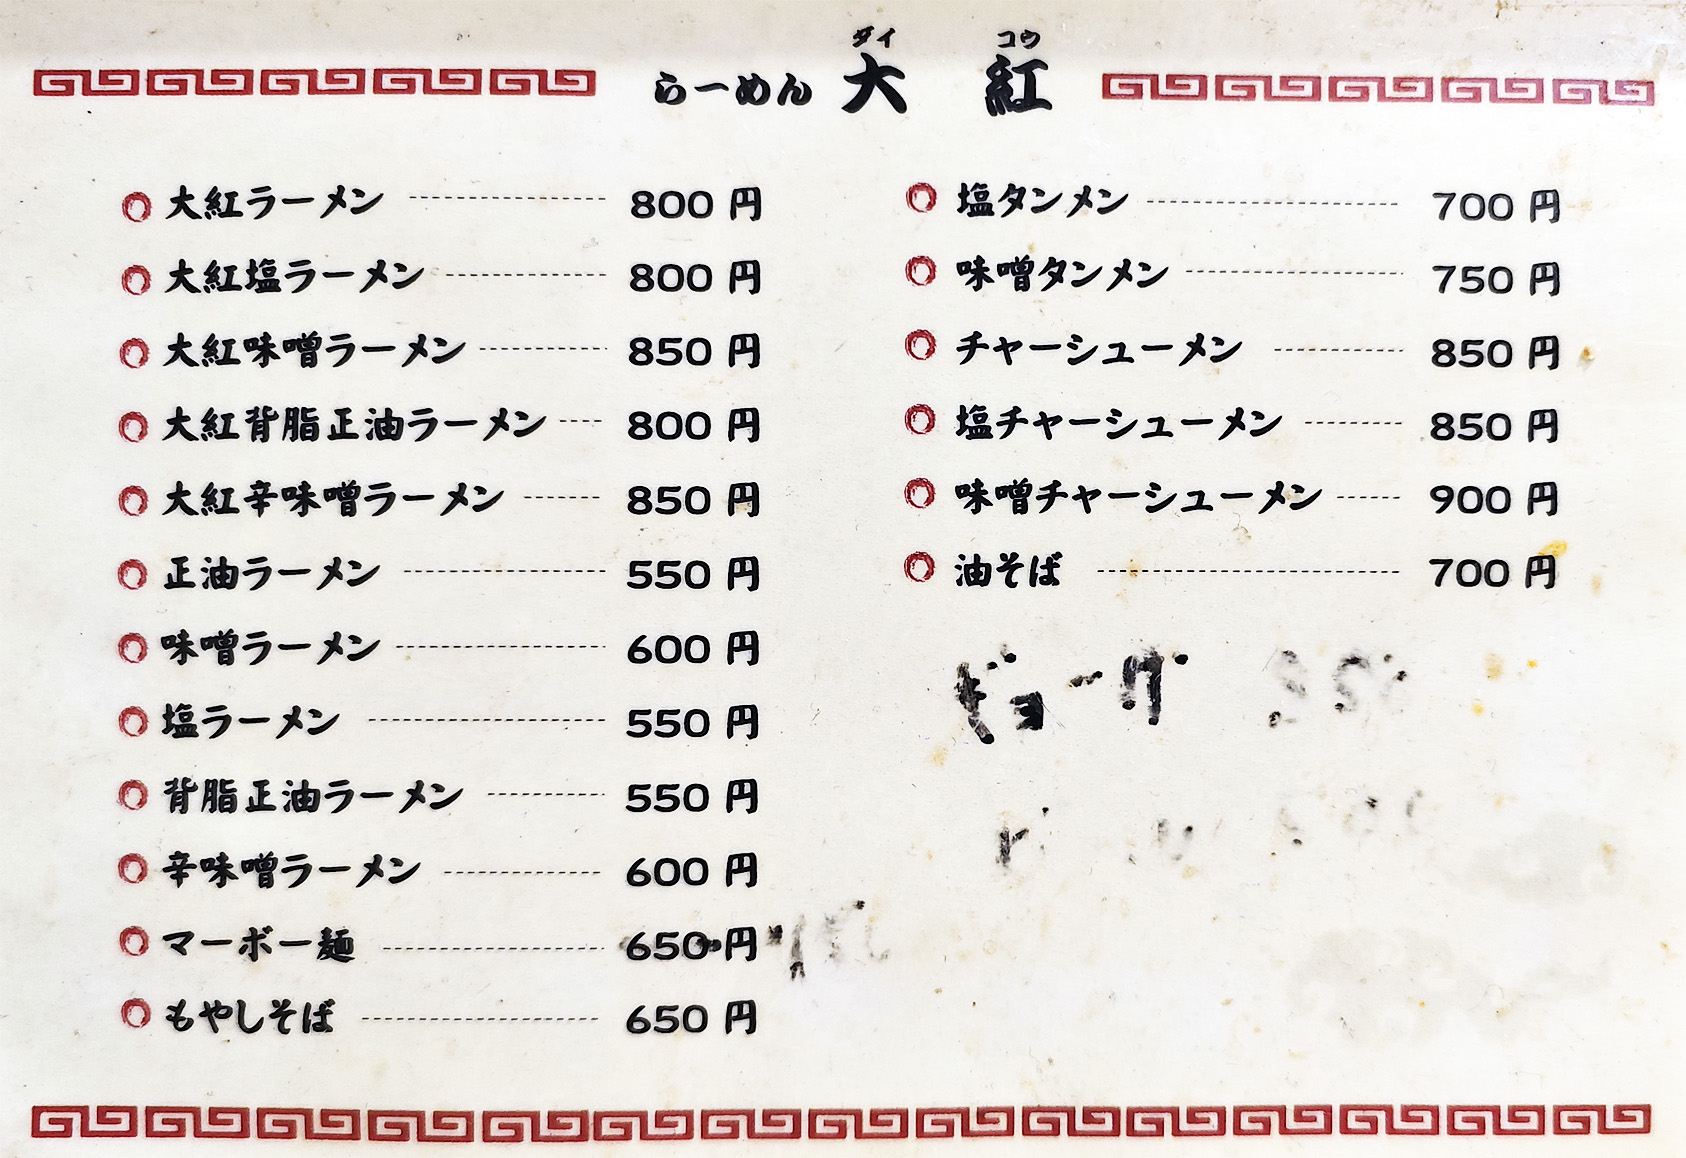 ダイ コウ
らーめん 大 紅
大紅ラーメン 800 円
大紅塩ラーメン 800 円
大紅味噌ラーメン 850 円
大紅背脂正油ラーメン 800 円
大紅辛味噌ラーメン 850 円
正油ラーメン 550 円
味噌ラーメン 600 円
塩ラーメン 550 円
背脂正油ラーメン 550 円
辛味噌ラーメン 600 円
マーボー麺 650 円
もやしそば 650 円
塩タンメン 700 円
味噌タンメン 750 円
チャーシューメン 850 円
塩チャーシューメン 850 円
味噌チャーシューメン 900 円
油そば 700 円